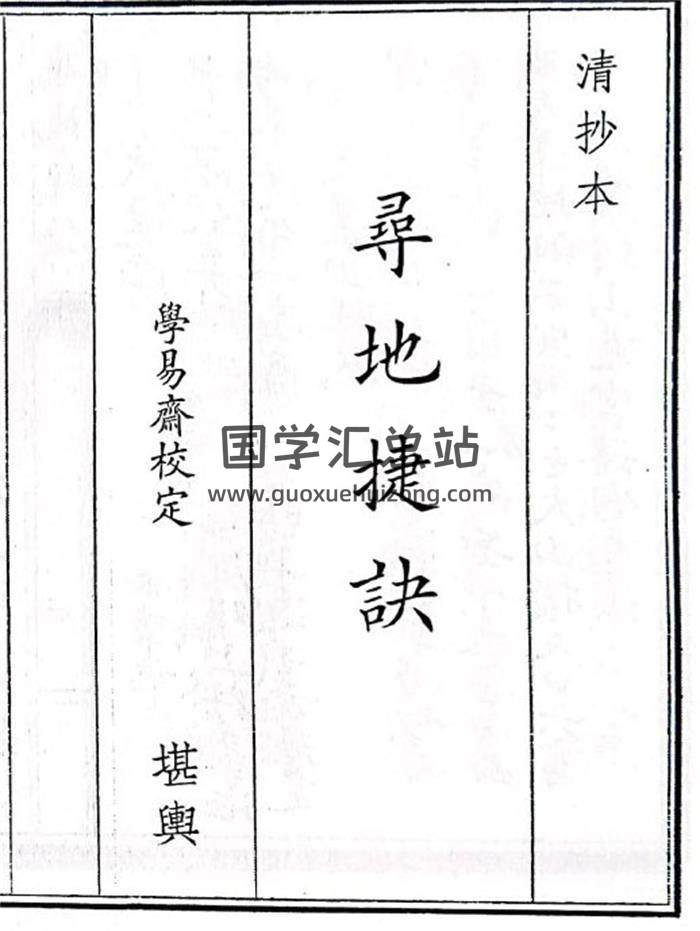 清抄本
尋地捷訣
學易齋校定
堪輿
国学汇总站
www.guoxuehuizong.com